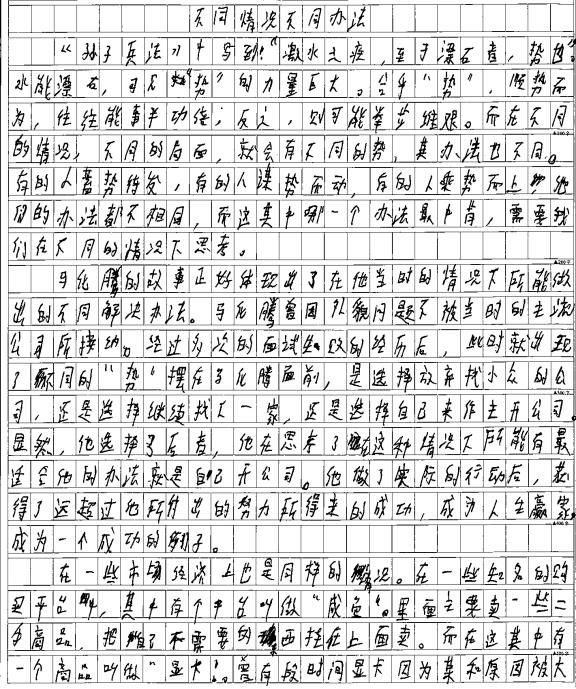 不同情况不同办法
“孙子兵法》中写到:“激水之疾，至于漂石者，势也”。
水能漂石，可见“势”的力量巨大。合乎“势”，顺势而
为，往往能事半功倍；反之，则可能举步维艰。而在不同
的情况，不同的局面，就会有不同的势，其办法也不同。
有的人蓄势待发，有的人谋势而动，有的人乘势而上，他
们的办法都不相同，而这其中哪一个办法最中肯，需要我
们在不同的情况下思考。
马化腾的故事正好体现出了在他当时的情况下所能做
出的不同解决办法。马化腾曾因外貌问题不被当时的主流
公司所接纳。经过多次的面试失败的经历后，此时就出现
了不同的“势”摆在马化腾面前，是选择放弃找小众的公
司，还是选择继续找下一家，还是选择自己来作主开公司。
显然，他选择了后者，他在思考了在这种情况下所能有最
适合他的办法就是自己开公司。他做了实际的行动后，获
得了远超过他所付出的努力所得来的成功，成为人生赢家
成为一个成功的例子。
在一些市场经济上也是同样的情况。在一些知名的购
买平台中，其中有个平台叫做“咸鱼”。里面主要卖一些二
手商品，把不需要的东西挂在上面卖。而在这其中有
一个商品叫做“显卡”。曾有段时间显卡因为某种原因被大